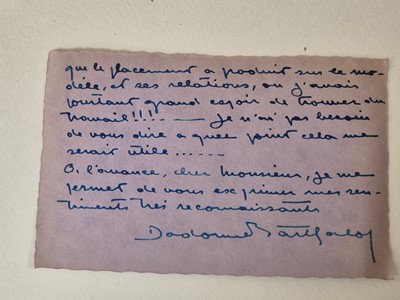 que le placement a produit sur le mo-
dèle, et ses relations, où j'avais
pourtant grand espoir de trouver du
travail!!!. — Je n'ai pas besoin
de vous dire à quel point cela me
serait utile......
A l'avance, cher Monsieur, je me
permet de vous exprimer mes sen-
timents très reconnaissants